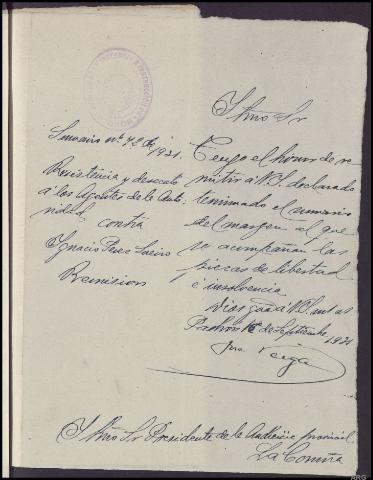 Sumario nº 72 de
1931.
Resistencia y desacato
á los Agentes de la Auto-
ridad contra
Ignacio
Remision
Iltmo Sr
Tengo el honor de re-
mitir á V.I. declarado
terminado el sumario
del margen al que
se acompañan las
piezas de libertad
é insolvencia.
Dios gue á V.I. m. as
Padron de Septiembre 1931
Veiga
Iltmo Sr Presidente de la Audiencia provincial
La Coruña